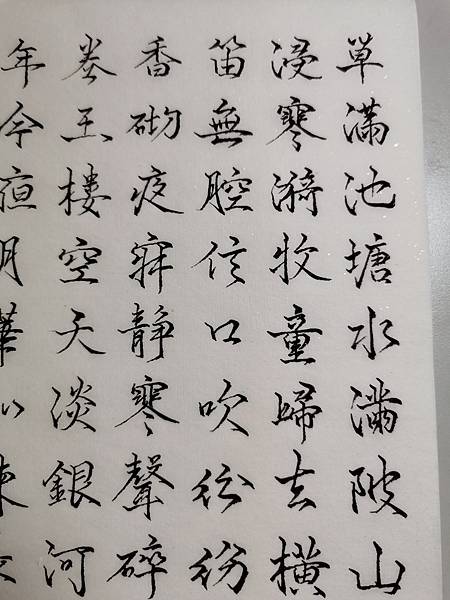 草滿池塘水滿陂山
浸寒漪牧童歸去橫
笛無腔信口吹紛紛
香砌夜寂靜寒聲碎
卷玉樓空天淡銀河
年今夜月華如練長